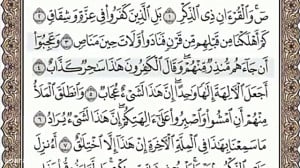 صٓ وَٱلْقُرْءَانِ ذِى ٱلذِّكْرِ ١ بَلِ ٱلَّذِينَ كَفَرُوا۟ فِى عِزَّةٍ وَشِقَاقٍ ٢
كَمْ أَهْلَكْنَا مِن قَبْلِهِم مِّن قَرْنٍ فَنَادَوا۟ وَّلَاتَ حِينَ مَنَاصٍ ٣ وَعَجِبُوٓا۟
أَن جَآءَهُم مُّنذِرٌ مِّنْهُمْ وَقَالَ ٱلْكَٰفِرُونَ هَٰذَا سَٰحِرٌ كَذَّابٌ ٤
أَجَعَلَ ٱلْءَالِهَةَ إِلَٰهًا وَٰحِدًا إِنَّ هَٰذَا لَشَىْءٌ عُجَابٌ ٥ وَٱنطَلَقَ ٱلْمَلَأُ
مِنْهُمْ أَنِ ٱمْشُوا۟ وَٱصْبِرُوا۟ عَلَىٰٓ ءَالِهَتِكُمْ إِنَّ هَٰذَا لَشَىْءٌ يُرَادُ ٦
مَا سَمِعْنَا بِهَٰذَا فِى ٱلْمِلَّةِ ٱلْءَاخِرَةِ إِنْ هَٰذَآ إِلَّا ٱخْتِلَٰقٌ ٧ أَءُنزِلَ